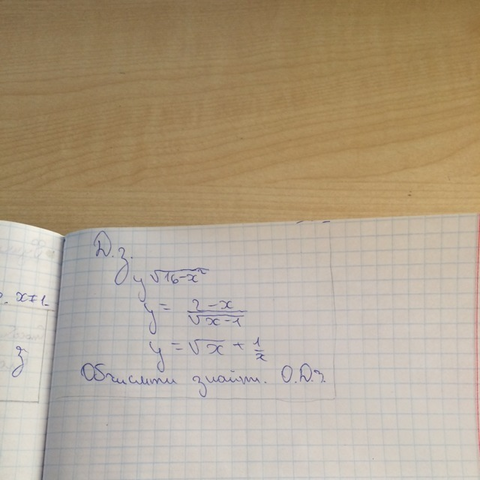 D.з.
y √16-x²
y = 2-x / √x-1
y = √x + 1/x
Обчислити знайти. О.D.з
x≠1
з